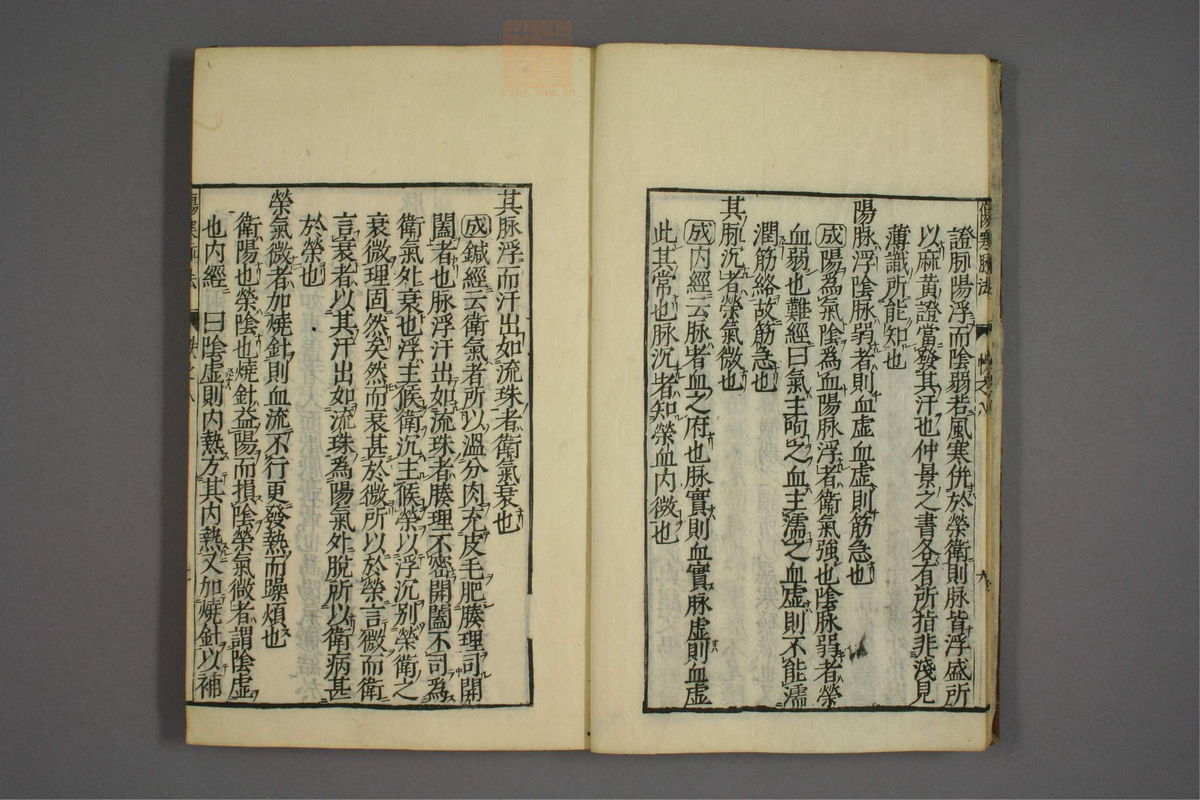 傷寒脉法
證脉陽浮而陰弱若風寒併於榮衛則脉皆浮盛所
以麻黄證當發其汗也仲景之書各有所指非淺見
薄識所能知也
陽脉浮陰脉弱者則血虛血虛則筋急也
成陽爲氣陰爲血陽脉浮者衛氣強也陰脉弱者榮
血弱也難經曰氣主呴之血主濡之血虛則不能濡
潤筋絡故筋急也
其脉沉者榮氣微也
成内經云脉者血之府也脉實則血實脉虛則血虛
此其常也脉沉者知榮血内微也
其脉浮而汗出如流珠者衛氣衰也
成鍼經云衛氣者所以溫分肉充皮毛肥腠理司開
闔者也脉浮汗出如流珠者腠理不密開闔不司爲
衛氣外衰也浮主候衛沉主候榮以浮沉别榮衛之
衰微理固然矣然而衰甚於微所以於榮言微而衛
言衰者以其汗出如流珠爲陽氣外脫所以衛病甚
於榮也
榮氣微者加燒針則血流不行更發熱而躁煩也
衛陽也榮陰也燒針益陽而損陰榮氣微者謂陰虛
也内經曰陰虛則内熱方其内熱又加燒針以補